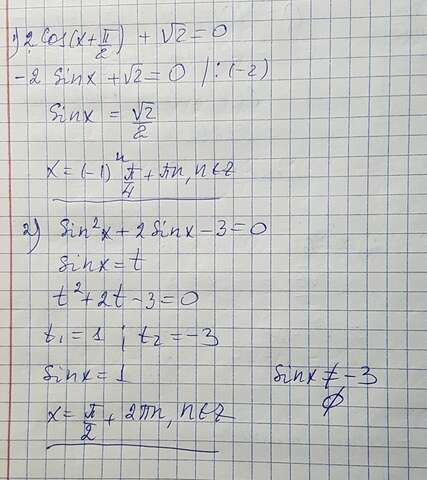 1) 2 Cos(x + π/2) + √2 = 0
-2 Sinx + √2 = 0 |:(-2)
Sinx = √2/2
x = (-1)ⁿ π/4 + πn, n∈Z
2) Sin²x + 2Sinx - 3 = 0
Sinx = t
t² + 2t - 3 = 0
t₁ = 1 ; t₂ = -3
Sinx = 1 Sinx ≠ -3
∅
x = π/2 + 2πn, n∈Z